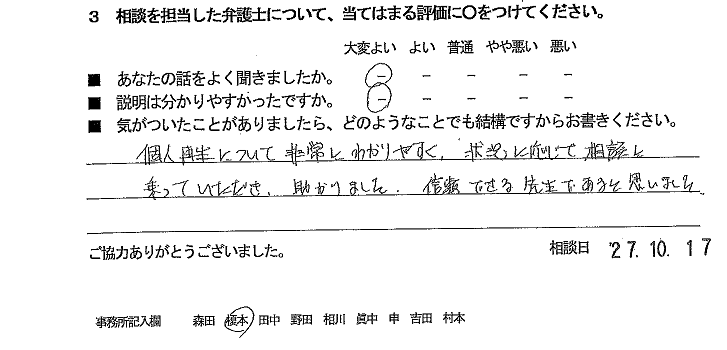 3 相談を担当した弁護士について、当てはまる評価に〇をつけてください。
大変よい よい 普通 やや悪い 悪い
■ あなたの話をよく聞きましたか。 － － － － －
■ 説明は分かりやすかったですか。 － － － － －
■ 気がついたことがありましたら、どのようなことでも結構ですからお書きください。
個人再生について非常にわかりやすく、状況に応じて相談に
乗っていただき、助かりました。信頼できる先生であると思いました
ご協力ありがとうございました。 相談日 '27.10.17
事務所記入欄 森田 榎本 田中 野田 相川 眞中 申 吉田 村本